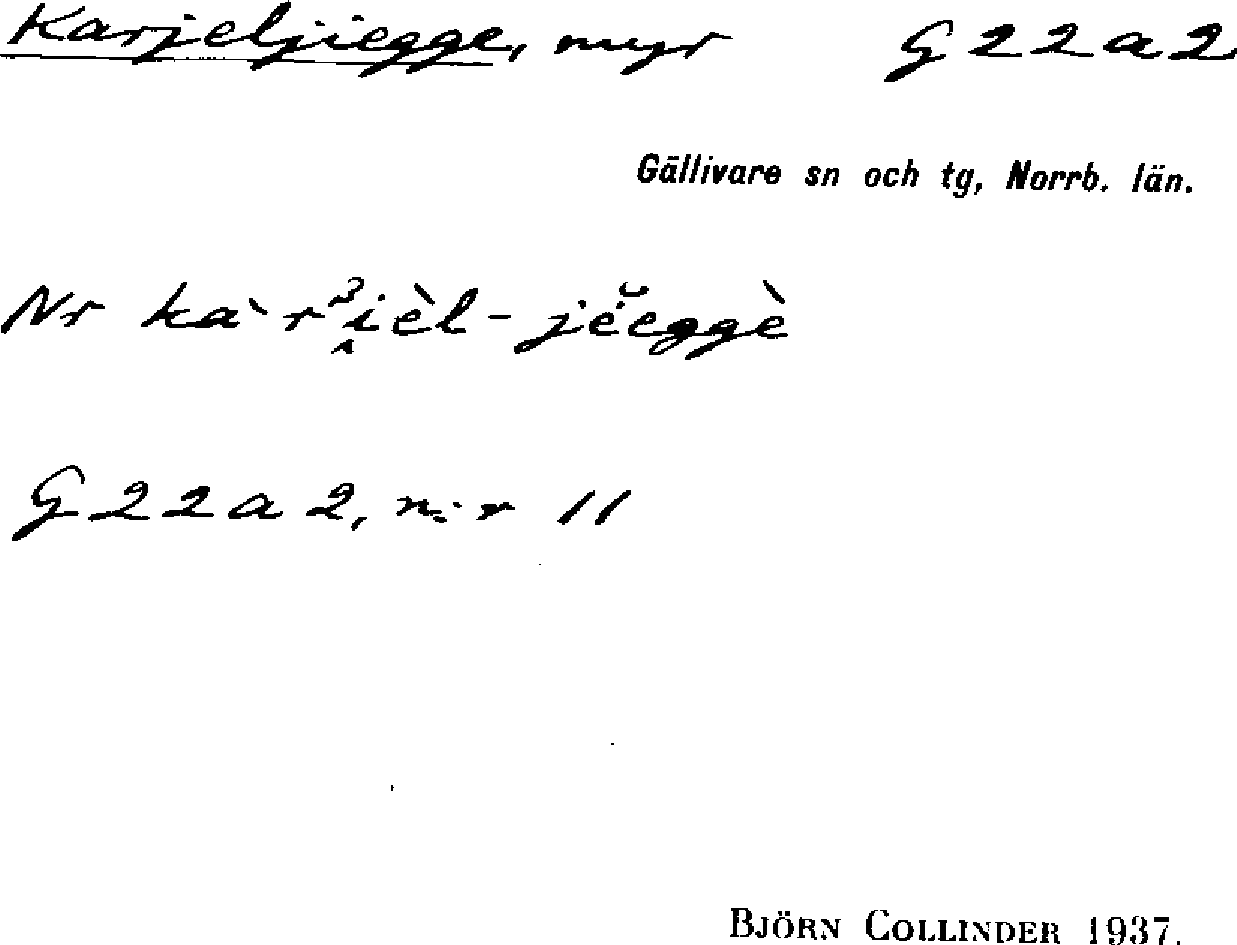 Karjeljiegge, myr G22a2
Gällivare sn och tg, Norrb. län.
Nr kàrᵌi̭èl-jĕ̇eggè
G22a2, n:r 11
BJÖRN COLLINDER 1937.